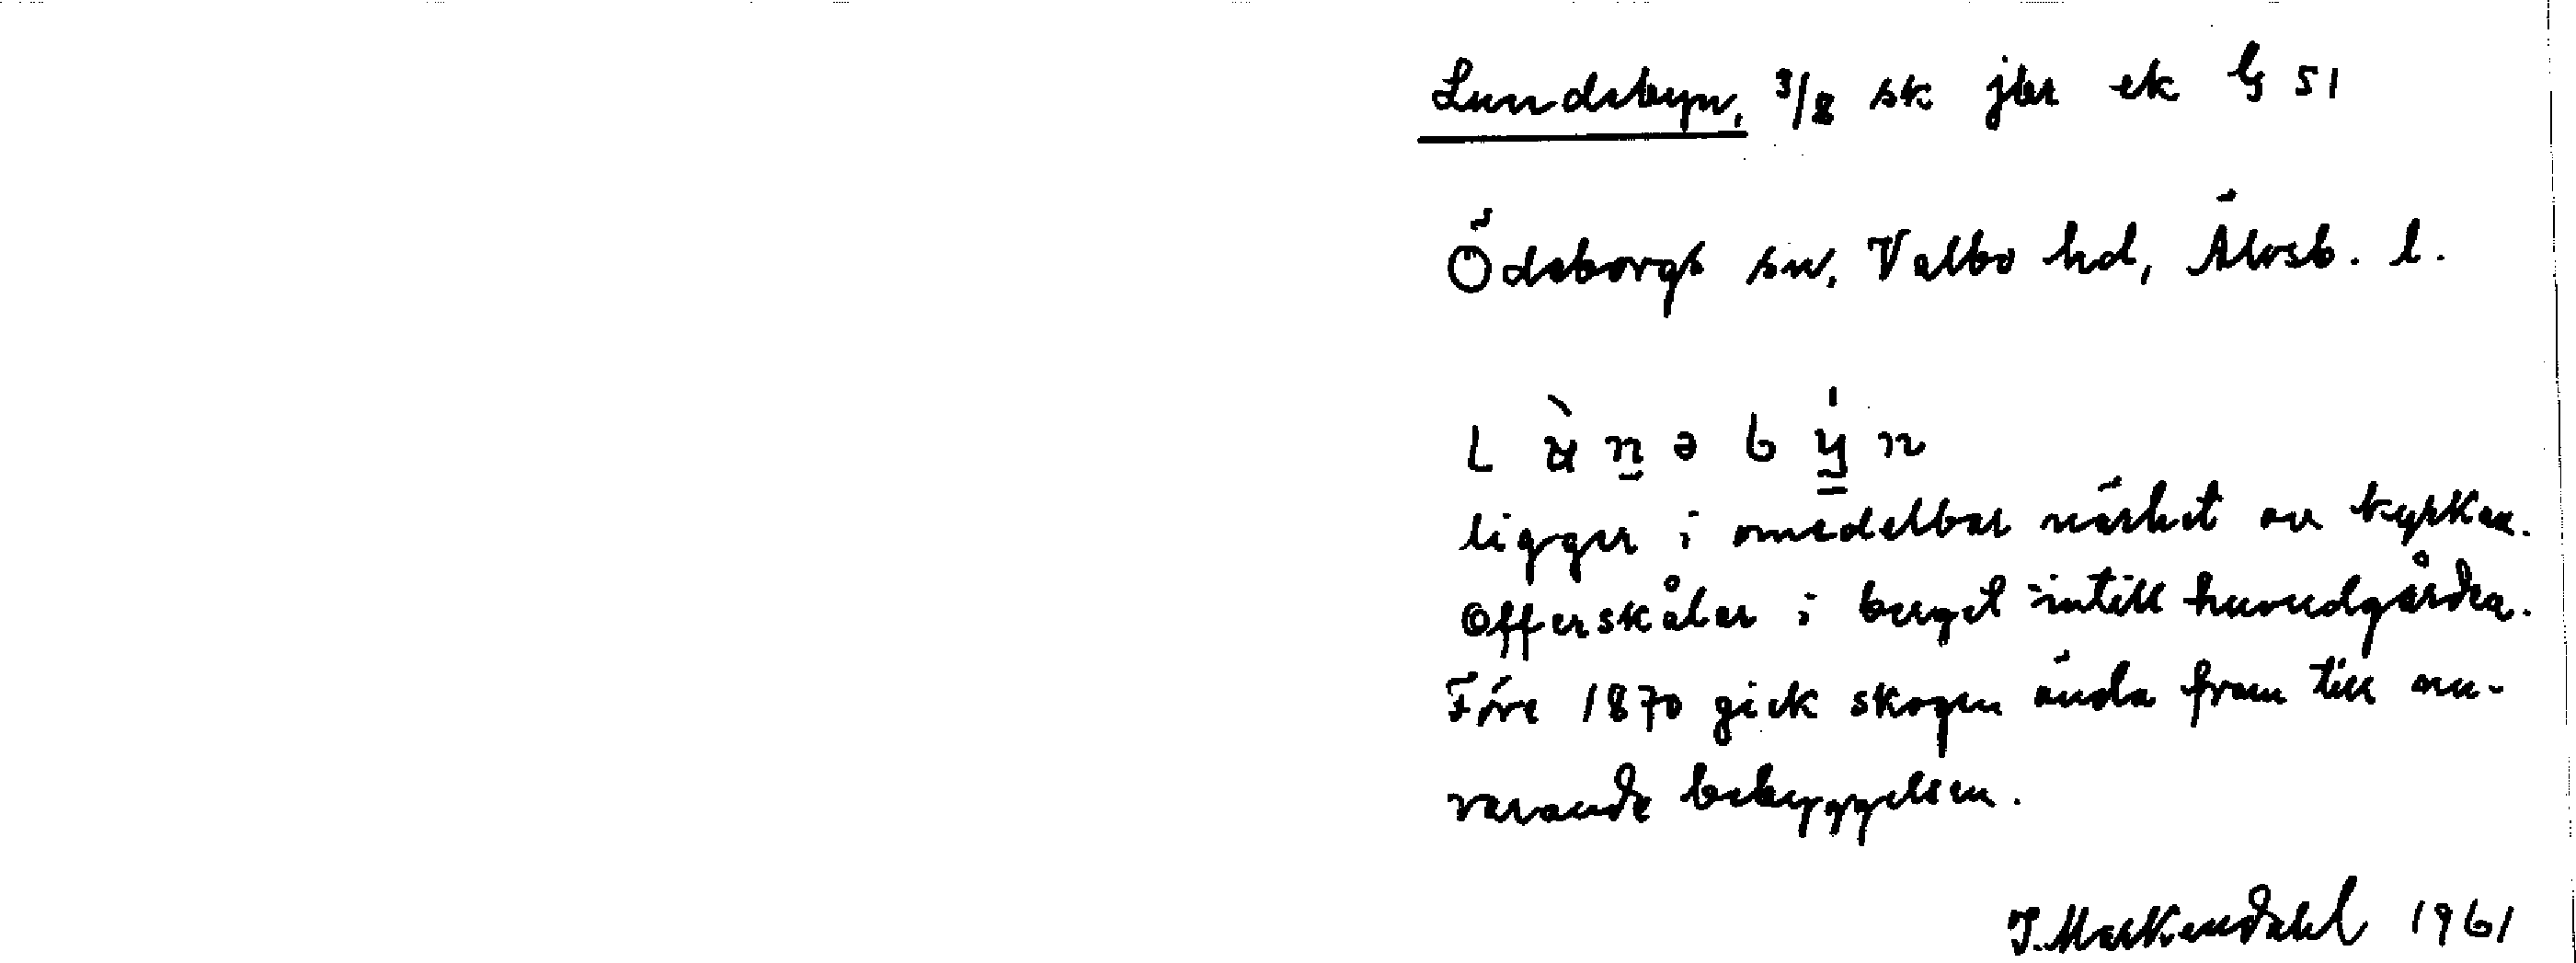 Lundsbyn, 3/8 sk jbr ek G 51
Ödsborgs sn, Valbo hd, Älvsb. l.
l ù̀ n̲ ə b ý̳ n
ligger i omedelbar närhet av kyrkan.
Offerskålar i berget intill huvudgården.
Före 1870 gick skogen ända fram till nu-
varande bebyggelsen.
J. Markendahl 1961